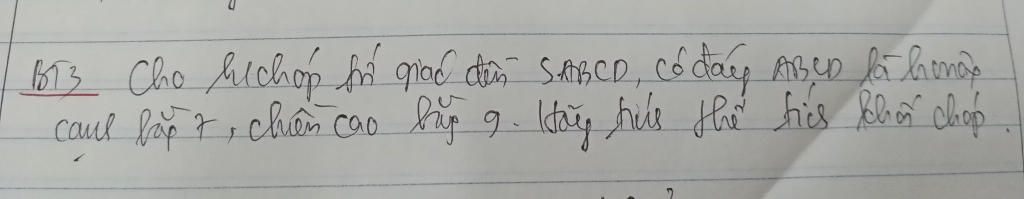 BT3 Cho h.chóp tứ giác đều SABCD, có đáy ABCD là h.vuông
cạnh bằng 7, chiều cao bằng 9. Hãy tính thể tích khối chóp.